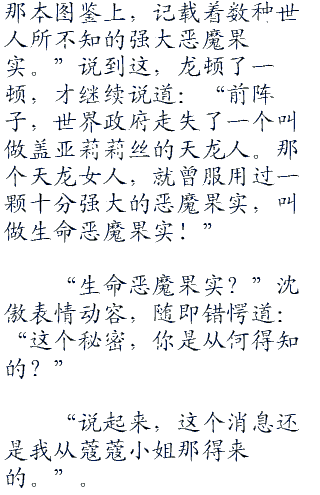 那本图鉴上，记载着数种世
人所不知的强大恶魔果
实。”说到这，龙顿了一
顿，才继续说道：“前阵
子，世界政府走失了一个叫
做盖亚莉莉丝的天龙人。那
个天龙女人，就曾服用过一
颗十分强大的恶魔果实，叫
做生命恶魔果实！”
“生命恶魔果实？”沈
傲表情动容，随即错愕道：
“这个秘密，你是从何得知
的？”
“说起来，这个消息还
是我从蔻蔻小姐那得来
的。”。